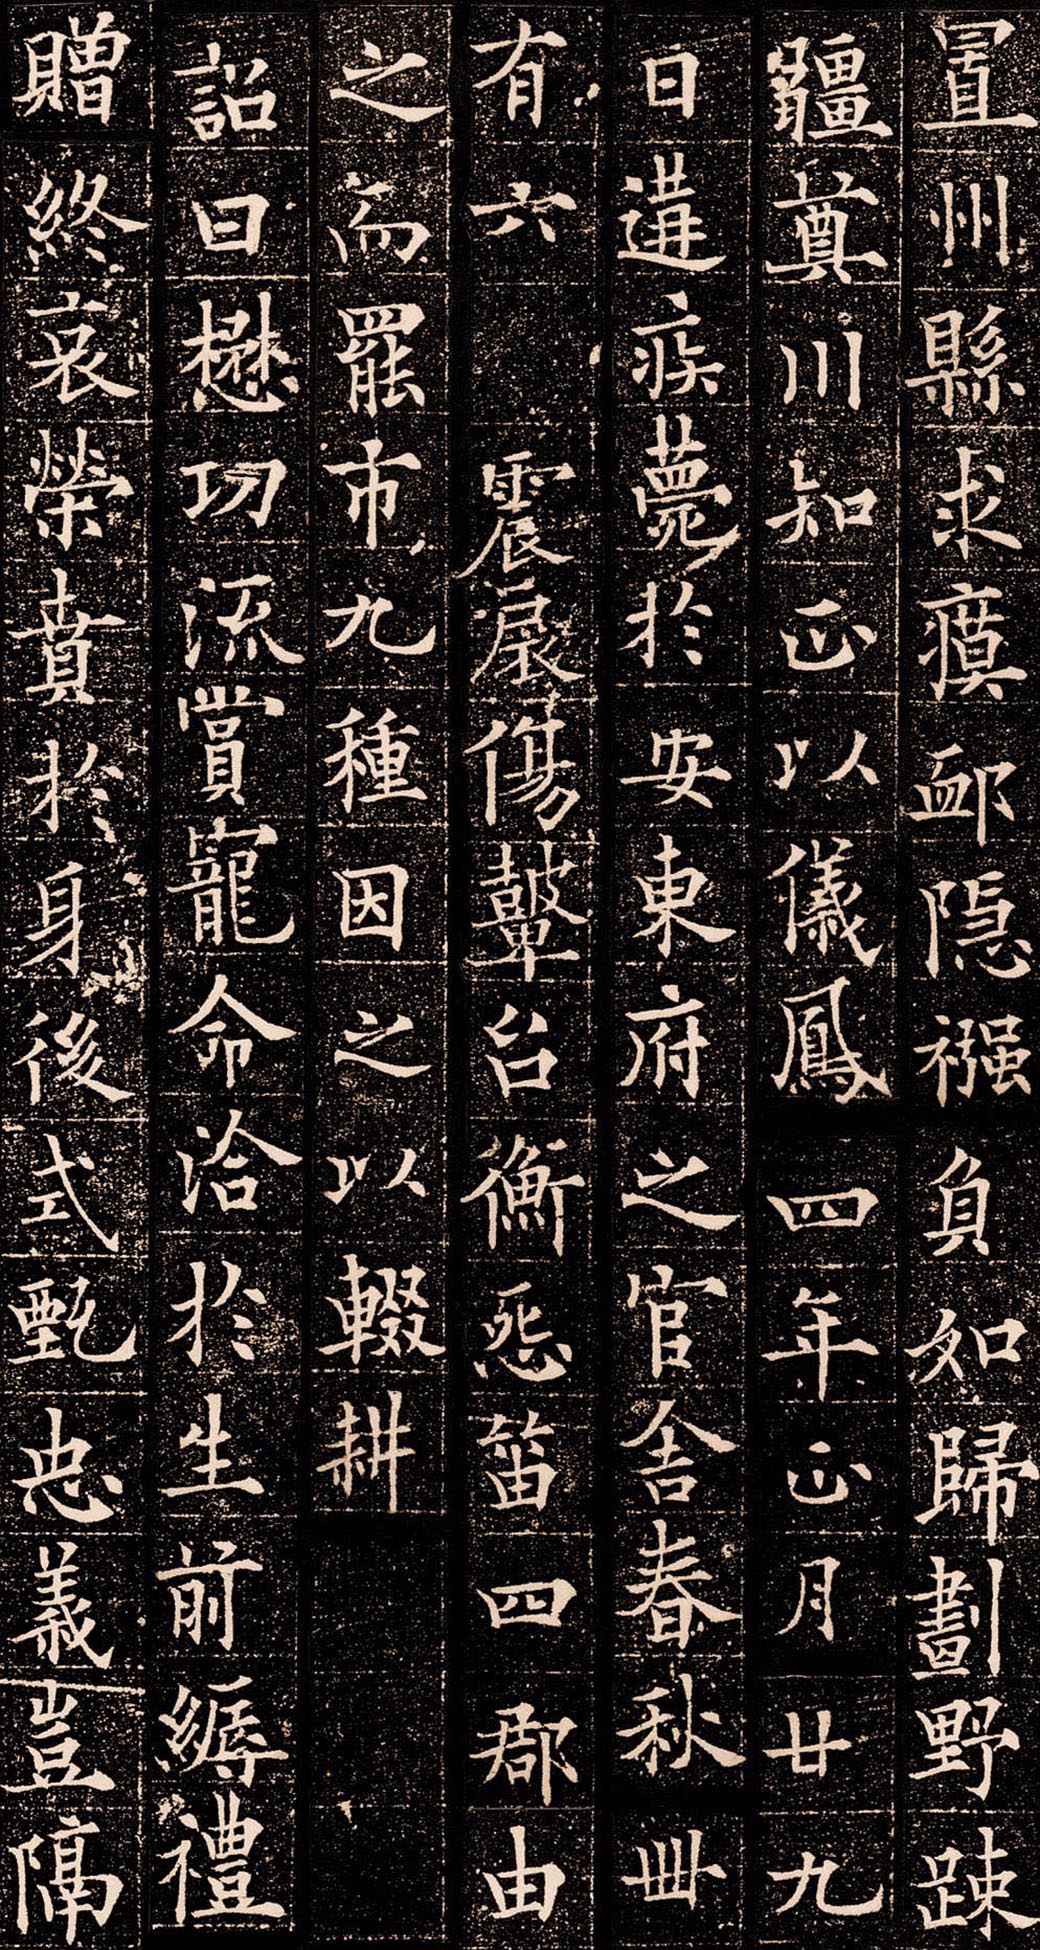 置州縣求瘼卹隱襁負如歸劃野踈
疆奠川知正以儀鳳四年正月廿九
日遘疾薨於安東府之官舍春秋卌
有六 震扆傷鼙台衡怨笛四郡由
之而罷市九種因之以輟耕
詔曰懋功流賞寵命洽於生前縟禮
贈終哀榮賁於身後式甄忠義豈隔